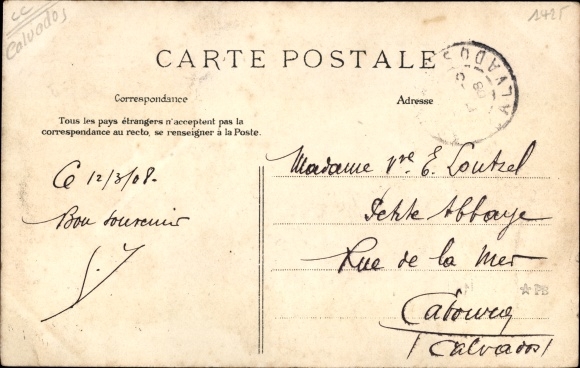 CC
Calvados
1425
CARTE POSTALE
CALVADOS
Correspondance
Adresse
Tous les pays étrangers n'acceptent pas la
correspondance au recto, se renseigner à la Poste.
Ce 12/3/08.
Bon souvenir
Madame Vve E.
Petite Abbaye
Rue de la Mer
Cabourg
(Calvados)